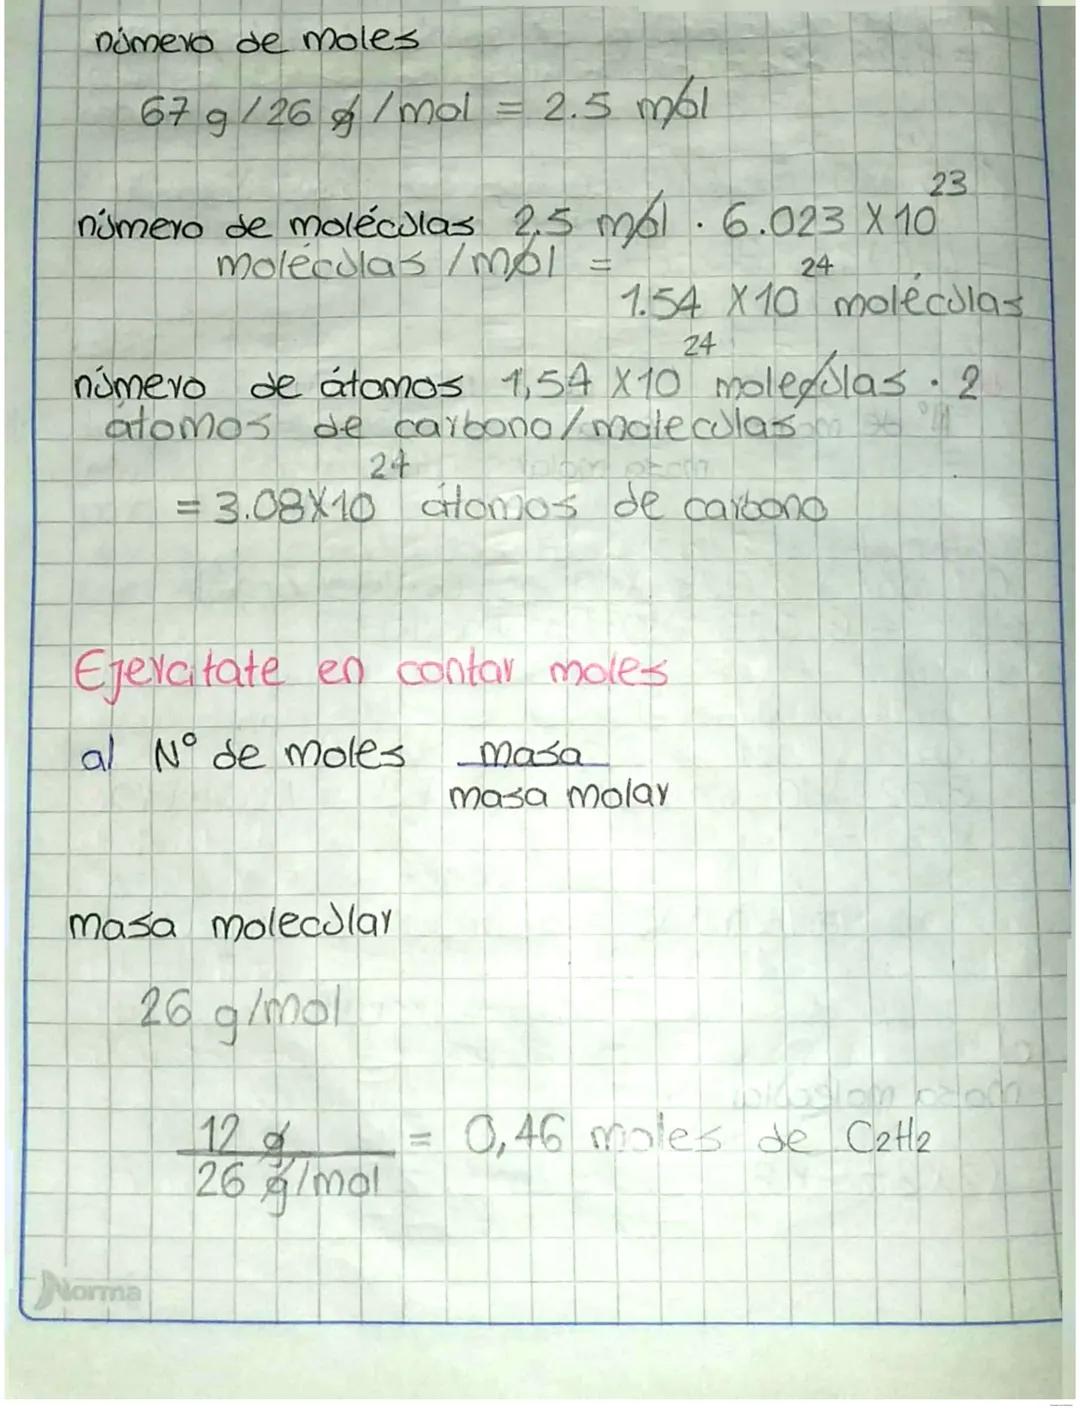 número de moles
67 g / 26 g /mol = 2.5 mol
número de moléculas 2,5 mol · 6.023 X 10²³
moléculas /mol =
1.54 X10²⁴ moléculas
número de átomos 1,54 X10²⁴ moleculas · 2
atomos de carbono/moleculas
= 3.08X10²⁴ átomos de carbono
Ejercitate en contar moles
a) N° de moles masa
masa molar
masa molecular
26 g/mol
12 g = 0,46 moles de C2H2
26 g/mol
Norma